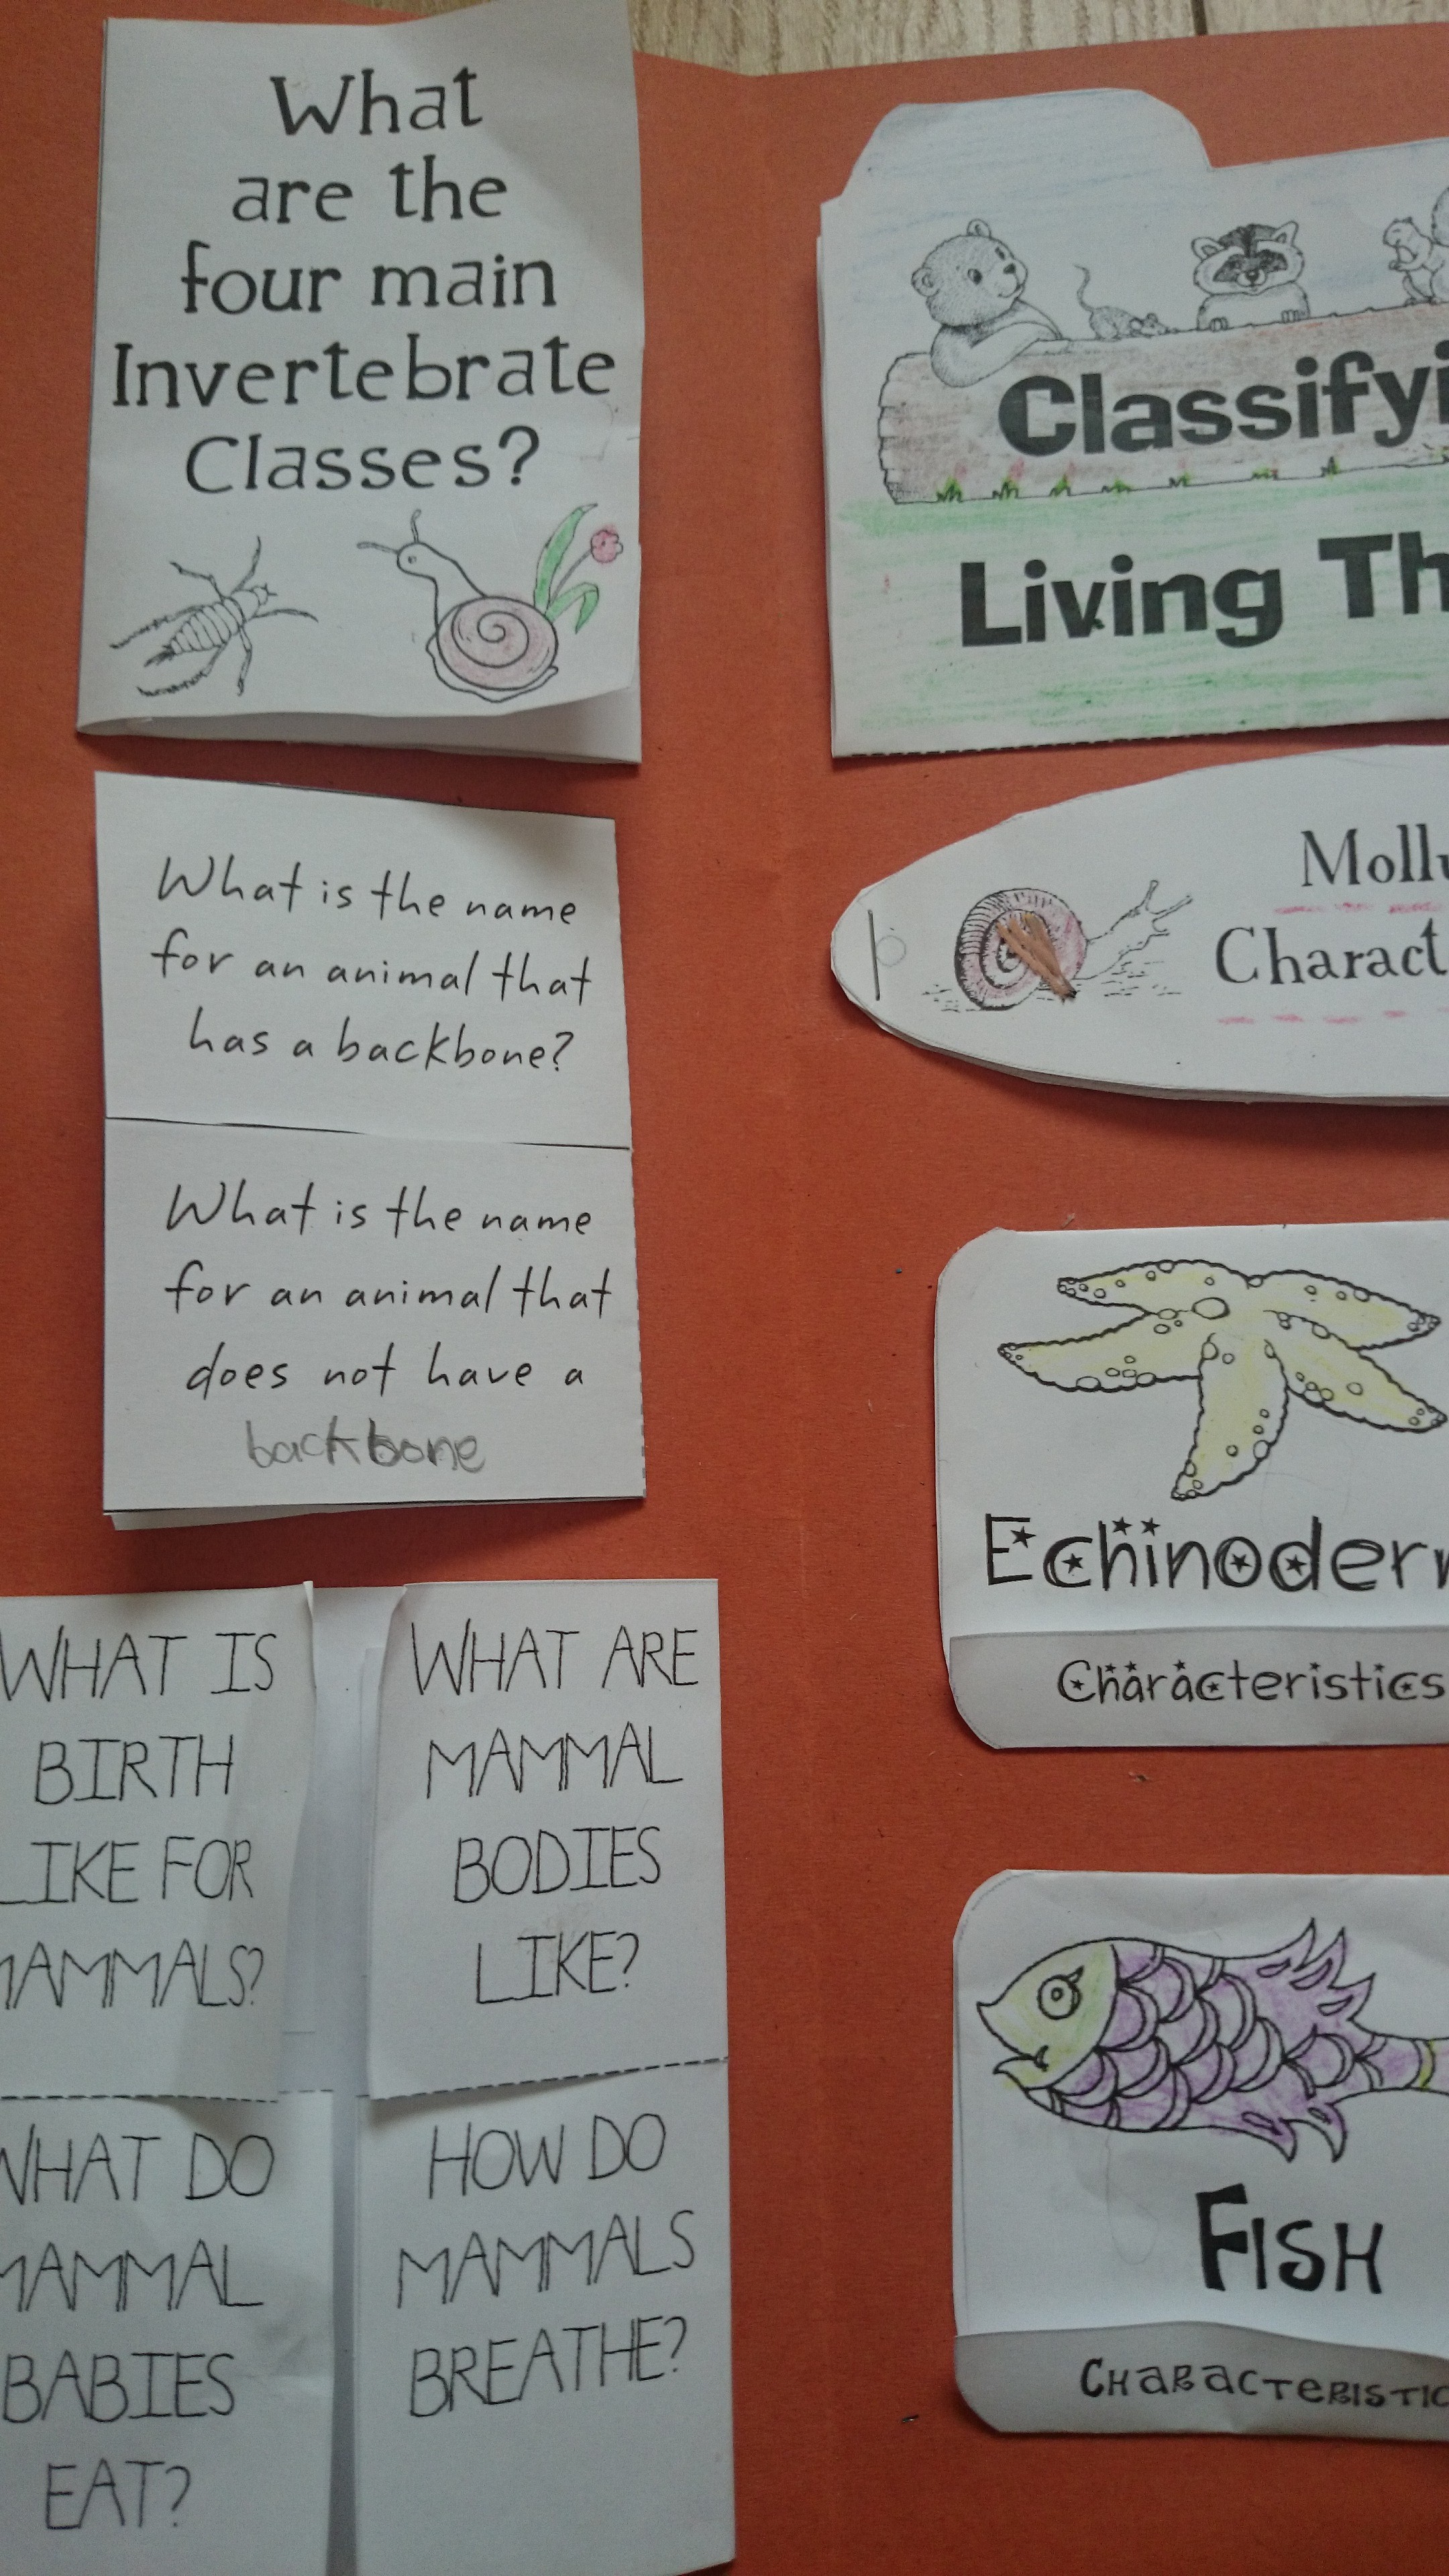 What
are the
four main
Invertebrate
Classes?
What is the name
for an animal that
has a backbone?
What is the name
for an animal that
does not have a
backbone
WHAT IS
BIRTH
LIKE FOR
MAMMALS?
WHAT ARE
MAMMAL
BODIES
LIKE?
WHAT DO
MAMMAL
BABIES
EAT?
HOW DO
MAMMALS
BREATHE?
Classifyi
Living Th
Mollu
Charact
Echinoderm
Characteristics
FISH
CHARACTERISTIC